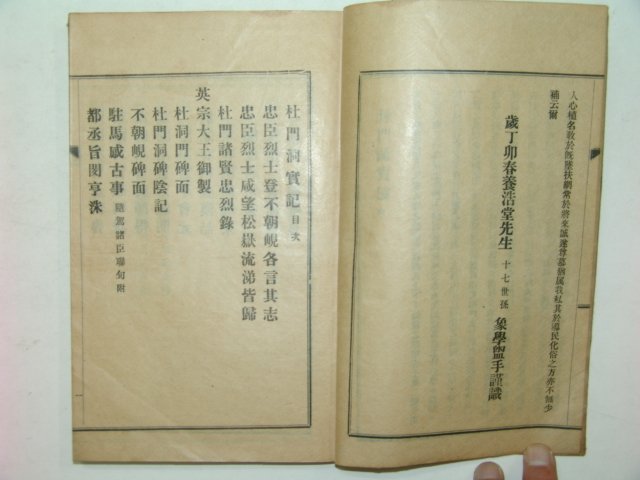 人心植名敎於旣墜扶綱常於將來誠遂尊慕猶属我私其於導民化俗之方亦不無少
補云爾
歲丁卯春養浩堂先生 十七世孫 象學盥手謹識
杜門洞實記目次
忠臣烈士登不朝峴各言其志
忠臣烈士咸望松嶽流涕皆歸
杜門諸賢忠烈錄
英宗大王御製
杜洞門碑面
杜門洞碑陰記
不朝峴碑面
駐馬感古事 隨駕諸臣聯句附
都丞旨閔亨洙